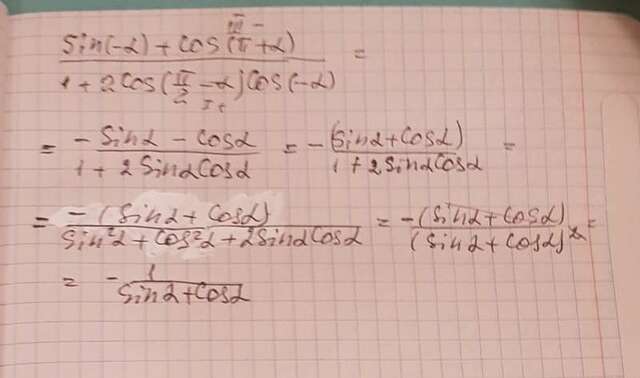 III −
sin(-α) + cos(π+α) / 1 + 2cos(π/2 - α)cos(-α) =
I +
= -sinα - cosα / 1 + 2sinαcosα = -(sinα+cosα) / 1+2sinαcosα =
= -(sinα + cosα) / sin²α + cos²α + 2sinαcosα = -(sinα+cosα) / (sinα + cosα)² =
= - 1 / sinα+cosα